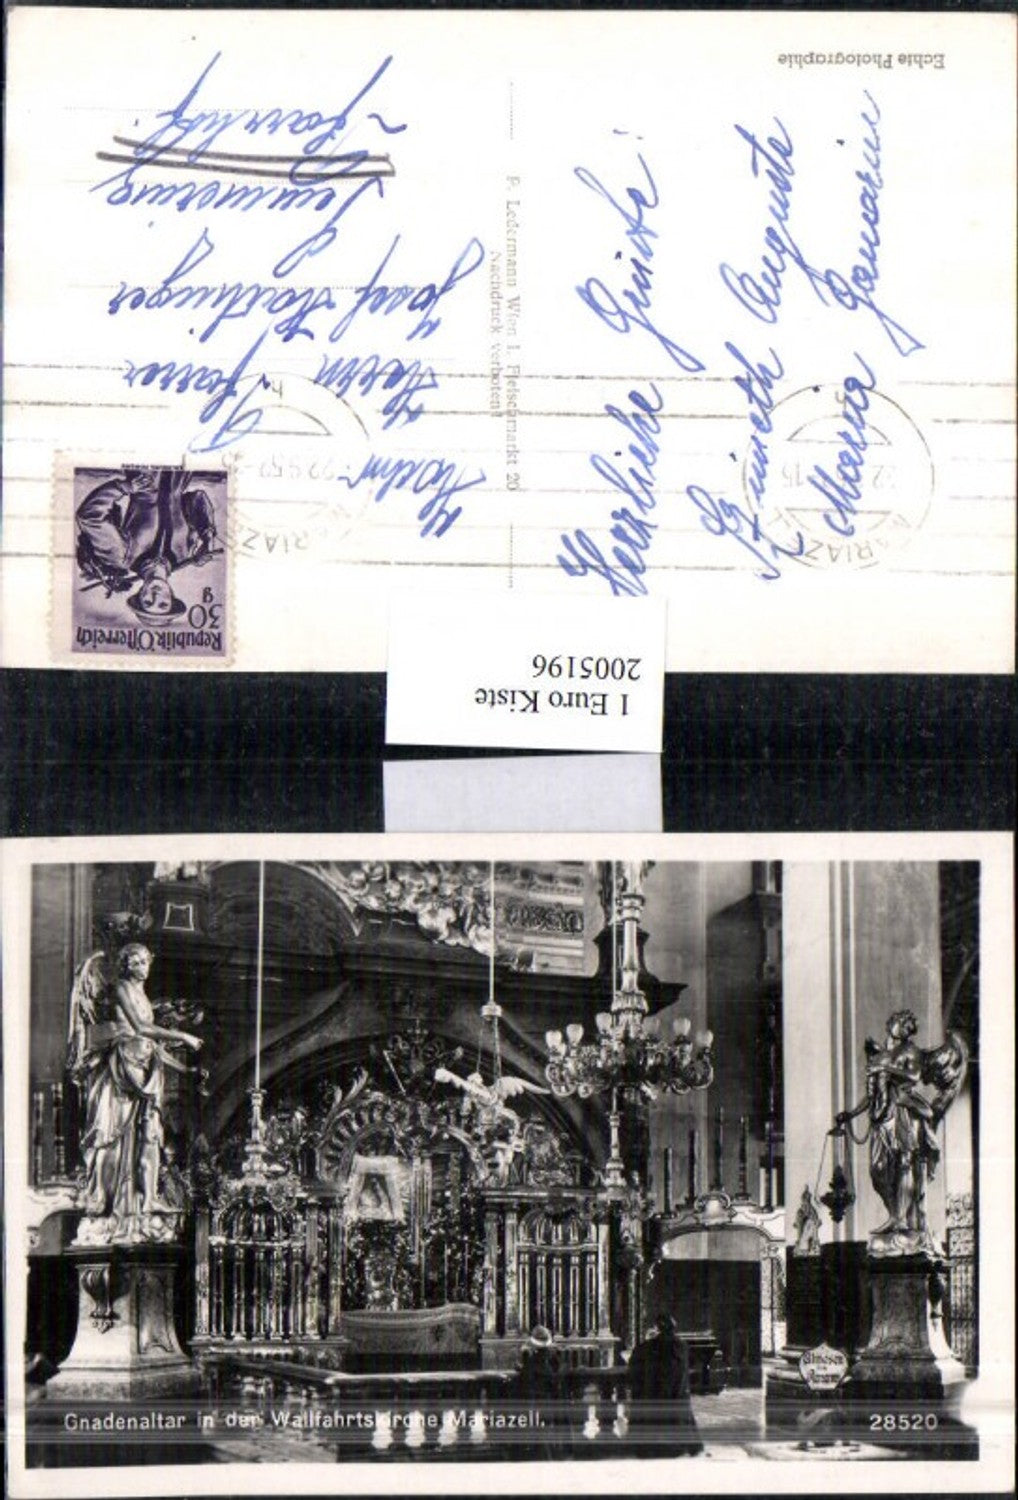 Echte Photographie
Herzliche Grüße!
Auguste
Maria
P. Ledermann Wien I, Fleischmarkt 20
Nachdruck verboten!
Herrn
Pfarrer
Josef
Pfarrhof
MARIAZELL
Republik Österreich
30
g
1 Euro Kiste
2005196
Almosen
Gnadenaltar in der Wallfahrtskirche Mariazell.
28520